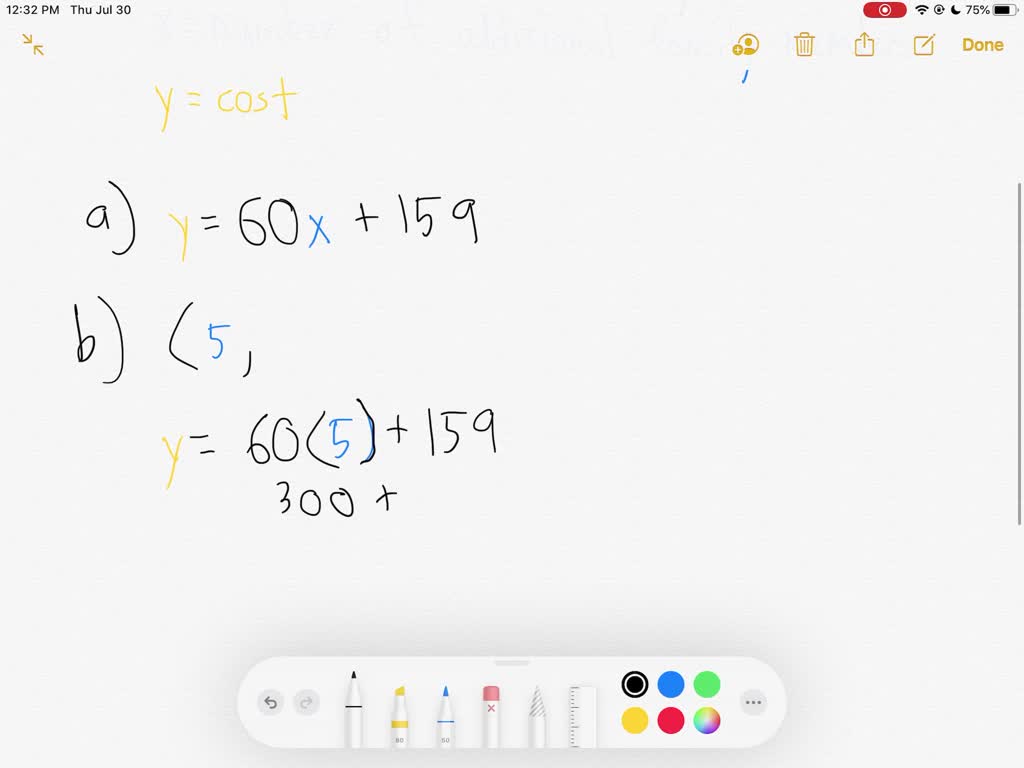 12:32 PM Thu Jul 30
75%
Done
y = cost
a) y = 60x + 159
b) (5,
y = 60(5) + 159
300 +
80
50